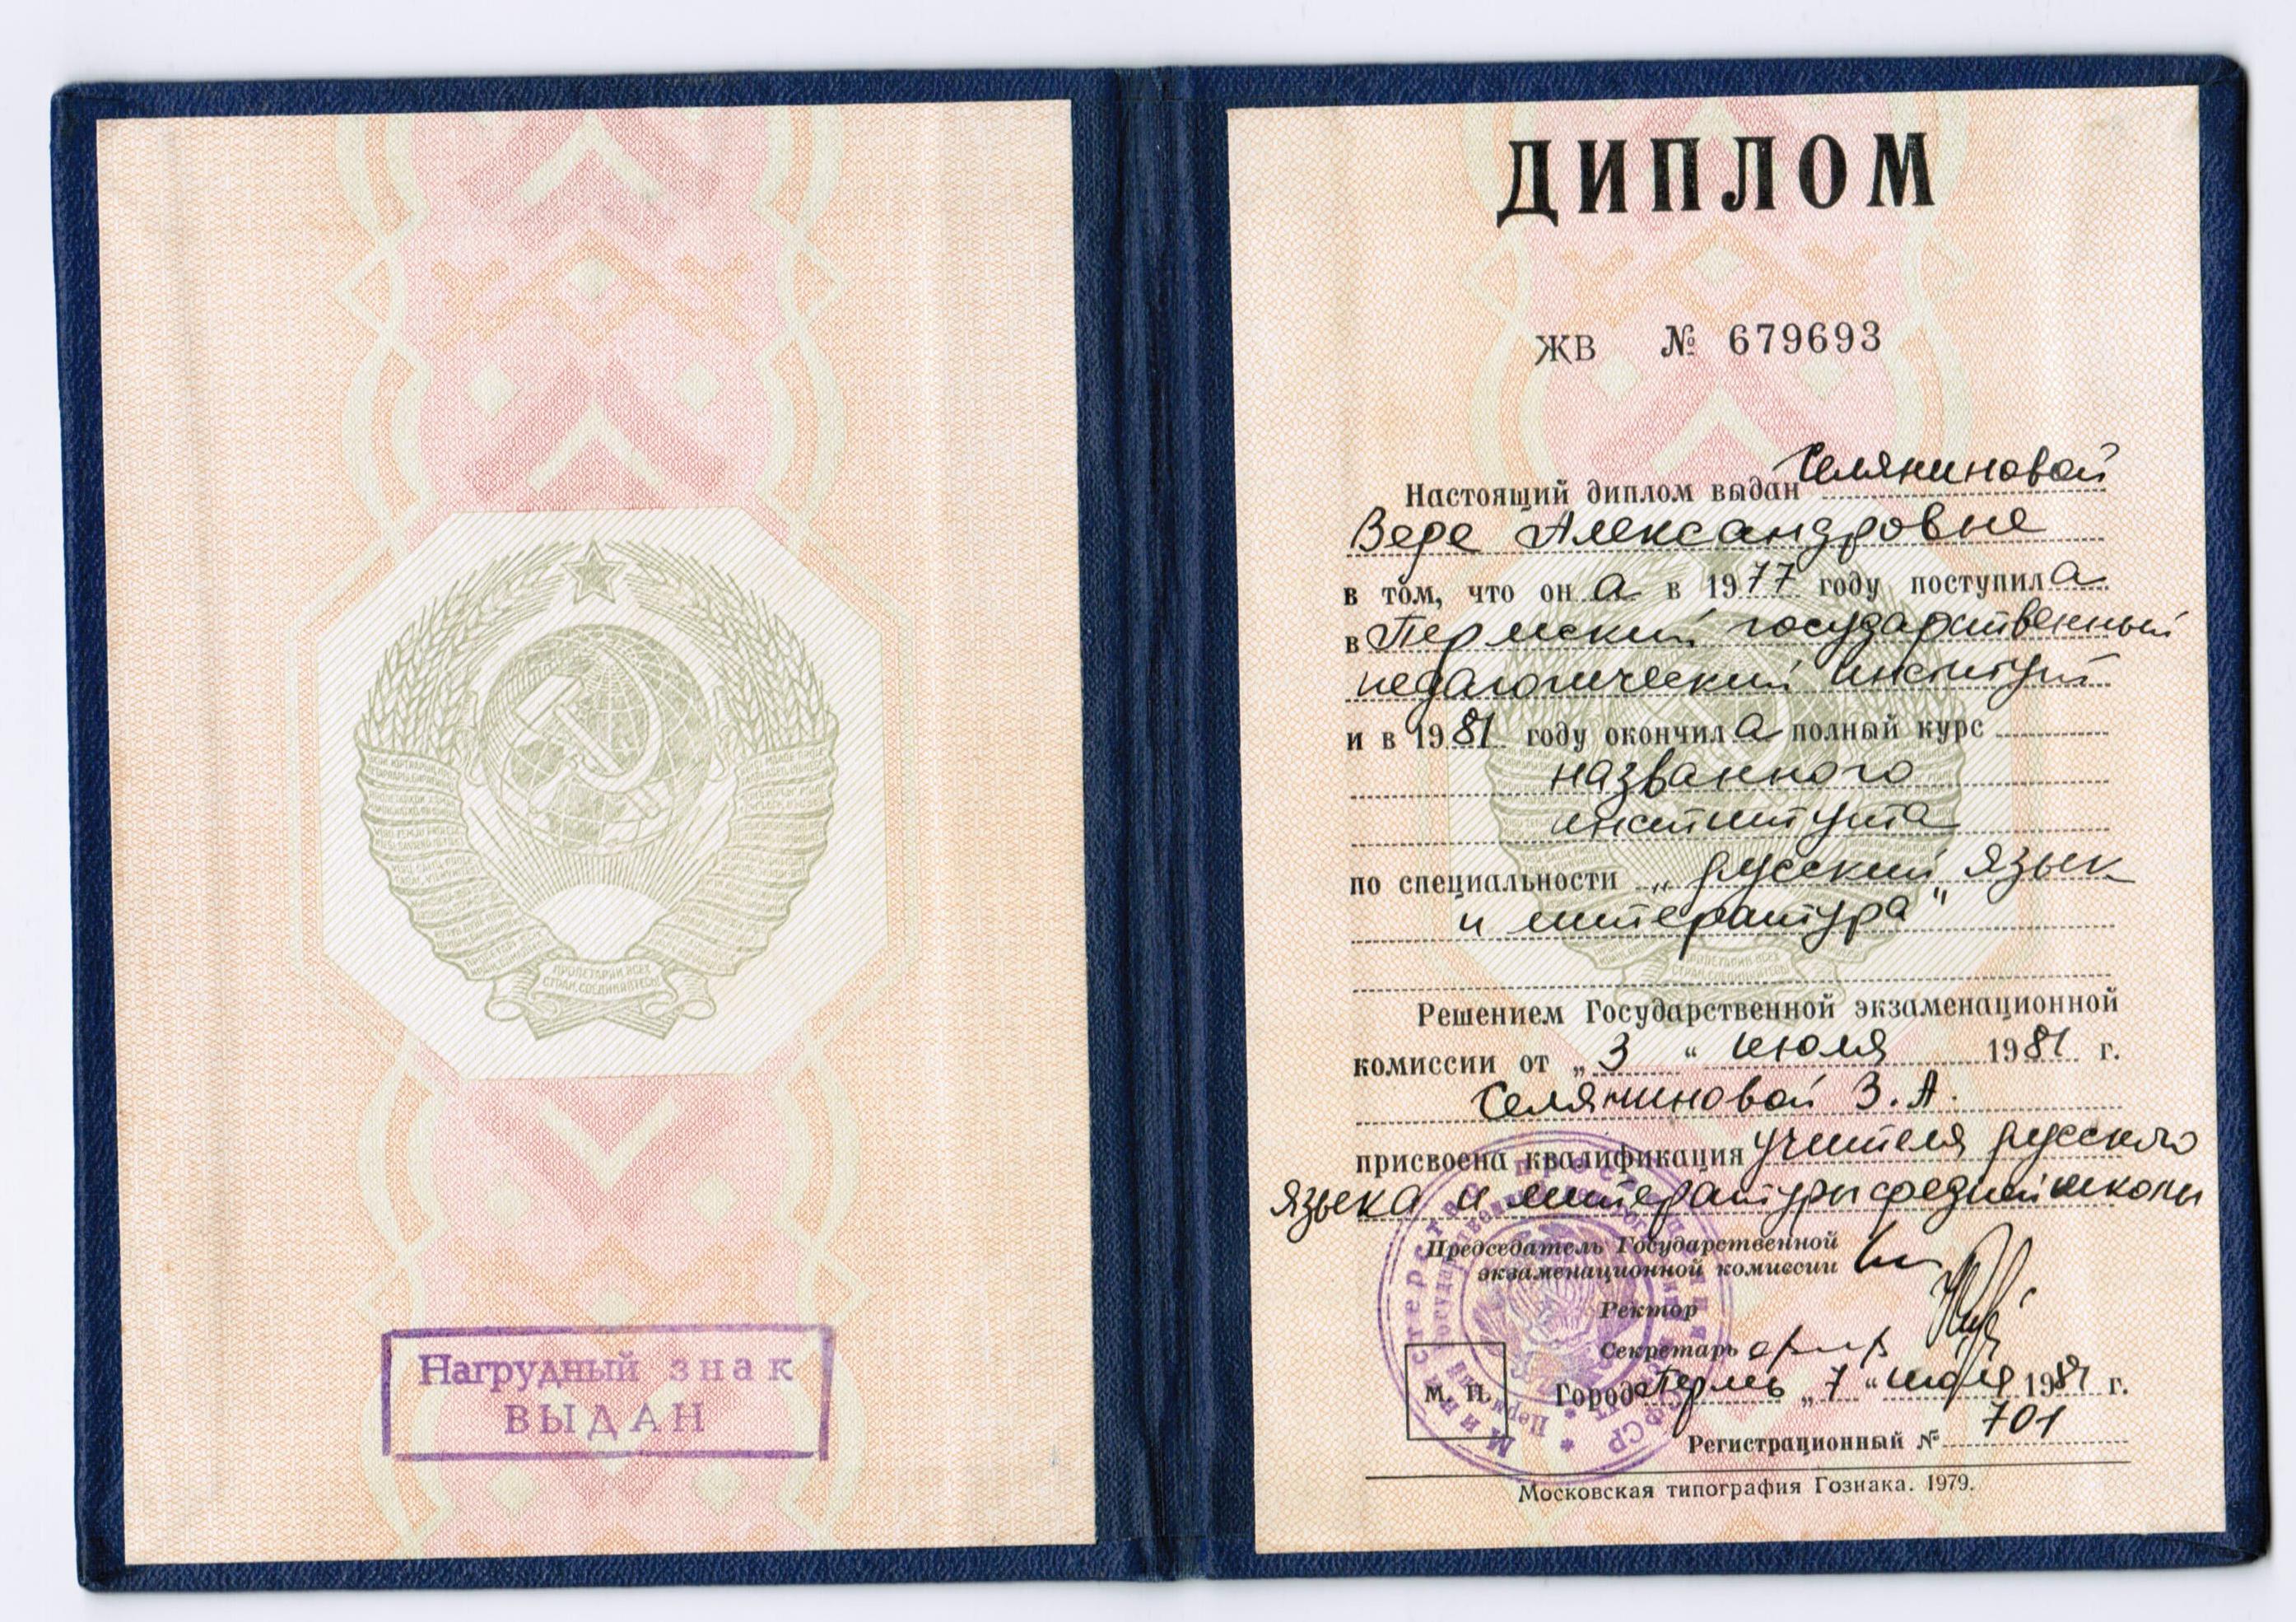 ПРОЛЕТАРИИ ВСЕХ
СТРАН, СОЕДИНЯЙТЕСЬ!
Нагрудный знак
ВЫДАН
ДИПЛОМ
ЖВ № 679693
Настоящий диплом выдан Селяниновой
Вере Александровне
в том, что он а в 1977 году поступил а
в Пермский государственный
педагогический институт
и в 1981 году окончил а полный курс
названного
института
по специальности „русский язык
и литература"
Решением Государственной экзаменационной
комиссии от „3" июля 1981 г.
Селяниновой В. А.
присвоена квалификация учителя русского
языка и литературы средней школы
Председатель Государственной
экзаменационной комиссии
Ректор
Секретарь
М. П. Город Пермь „7" июля 1981 г.
Регистрационный № 701
Московская типография Гознака. 1979.